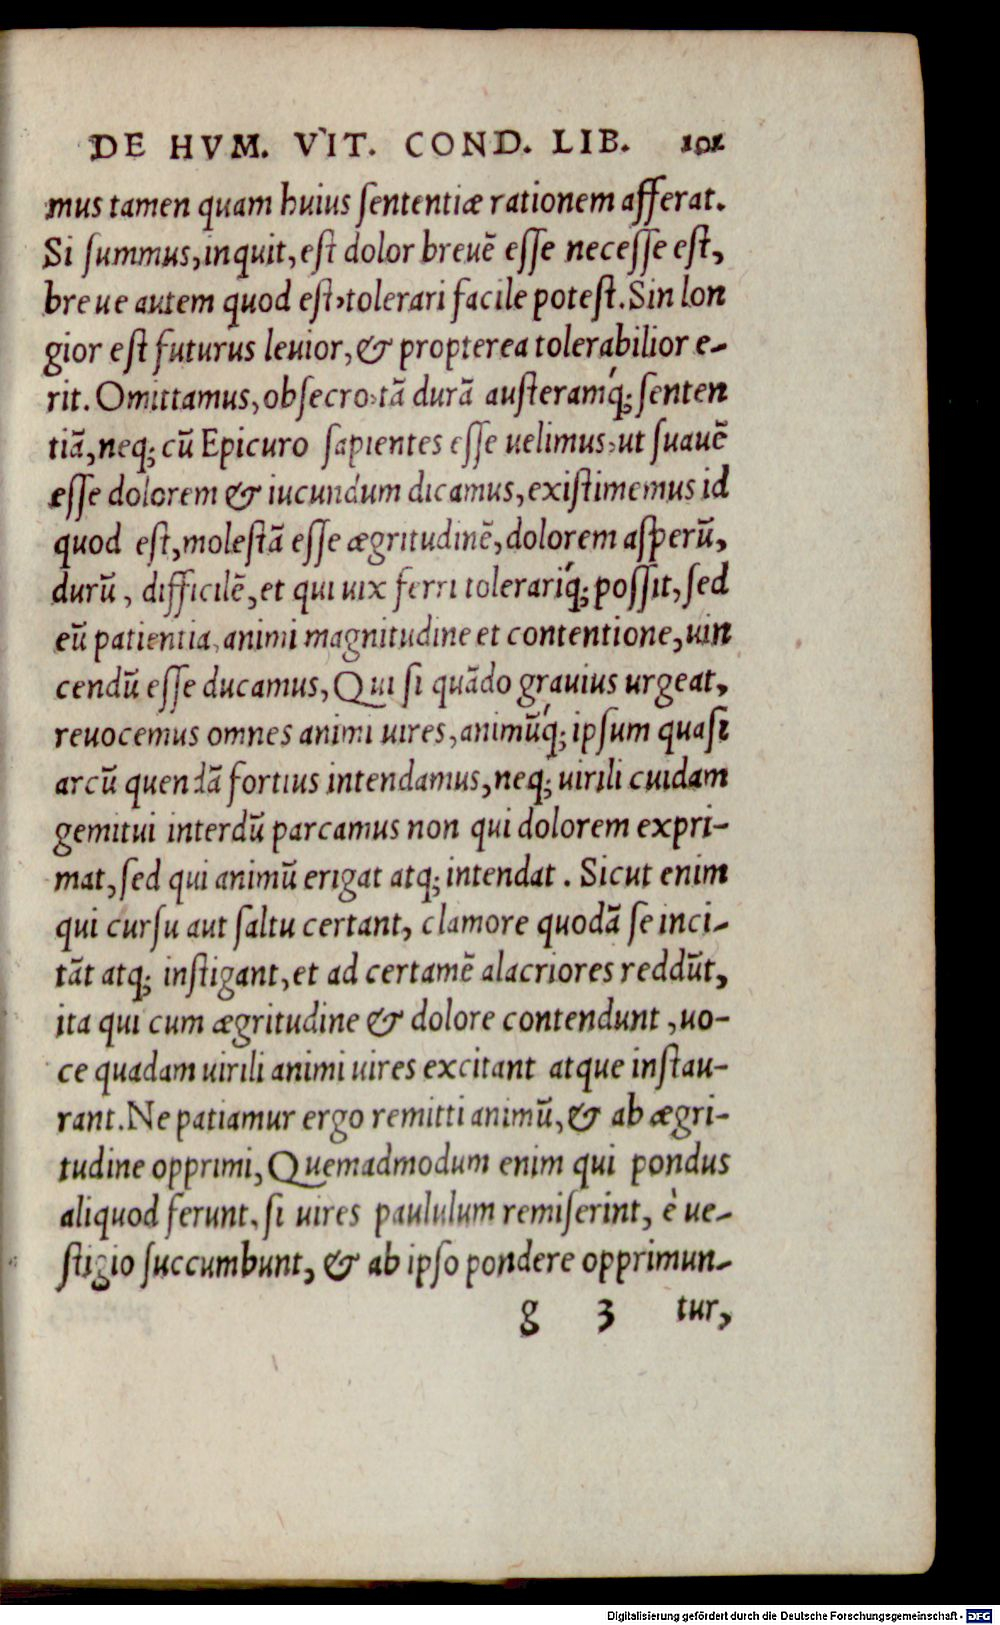 DE HVM. VIT. COND. LIB. 101
mus tamen quam huius ſententiæ rationem afferat.
Si ſummus, inquit, eſt dolor breuē eſſe neceſſe eſt,
breue autem quod eſt, tolerari facile poteſt. Sin lon
gior eſt futurus leuior, & propterea tolerabilior e-
rit. Omittamus, obſecro, tā durā auſteramq́; ſenten
tiā, neq; cū Epicuro ſapientes eſſe uelimus, ut ſuauē
eſſe dolorem & iucundum dicamus, exiſtimemus id
quod eſt, moleſtā eſſe ægritudinē, dolorem aſperū,
durū, difficilē, et qui uix ferri tolerariq́; poſſit, ſed
eū patientia, animi magnitudine et contentione, uin
cendū eſſe ducamus, Qui ſi quādo grauius urgeat,
reuocemus omnes animi uires, animūq́; ipſum quaſi
arcū quendā fortius intendamus, neq; uirili cuidam
gemitui interdū parcamus non qui dolorem expri-
mat, ſed qui animū erigat atq; intendat. Sicut enim
qui curſu aut ſaltu certant, clamore quodā ſe inci-
tāt atq; inſtigant, et ad certamē alacriores reddūt,
ita qui cum ægritudine & dolore contendunt, uo-
ce quadam uirili animi uires excitant atque inſtau-
rant. Ne patiamur ergo remitti animū, & ab ægri-
tudine opprimi, Quemadmodum enim qui pondus
aliquod ferunt, ſi uires paululum remiſerint, è ue-
ſtigio ſuccumbunt, & ab ipſo pondere opprimun-
g 3 tur,
Digitalisierung gefördert durch die Deutsche Forschungsgemeinschaft - DFG